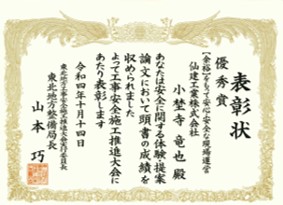 表彰状
優秀賞
「余裕」をもって安心・安全な現場運営
仙建工業株式会社
小埜寺 竜也 殿
あなたは安全に関する体験提案
論文において頭書の成績を
収められました
よって工事安全施工推進大会に
あたり表彰します
令和四年十月十四日
東北地方工事安全施工推進大会実行委員長
東北地方整備局長
山本 巧